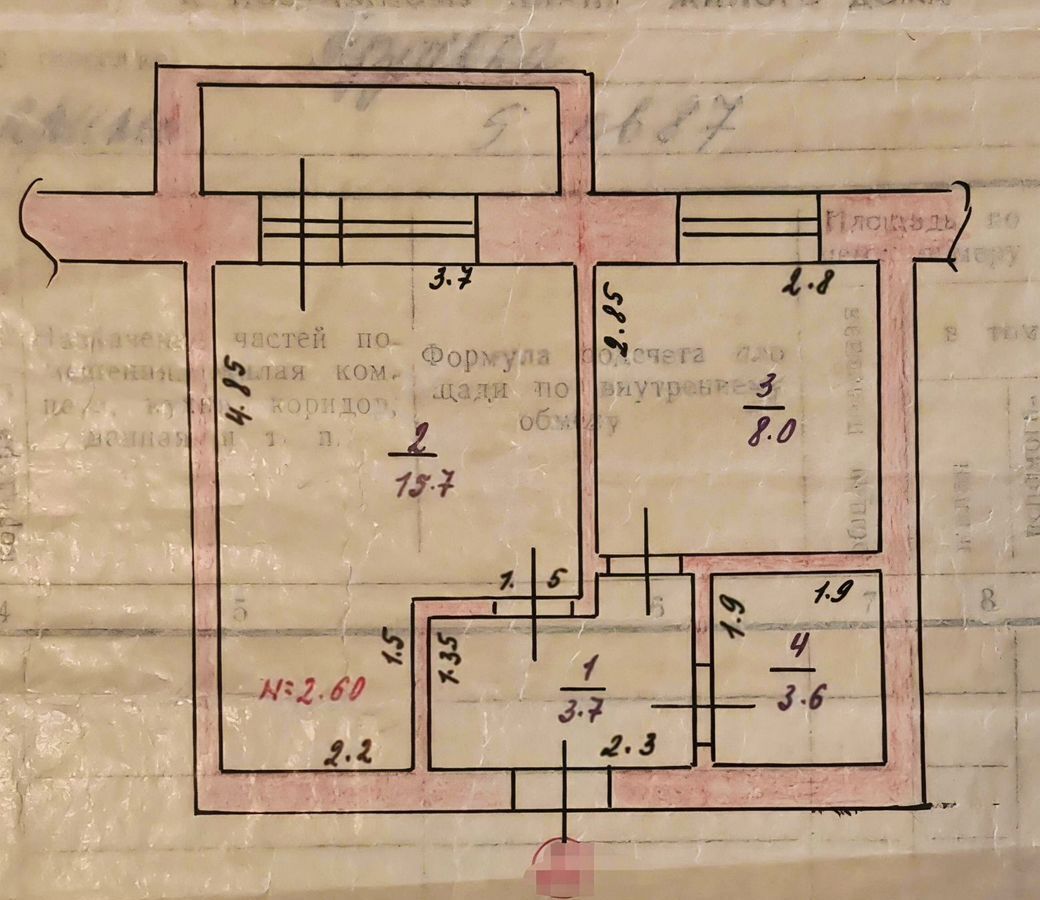 жилого дома
5 кв 87
3.7
2.8
2.85
Площадь по
Назначение частей по-
мещения жилая ком.
кухня, коридор,
ванная и т. п.
Формула подсчета пло
щади по внутреннему
обмеру
в том
4.85
2
15.7
3
8.0
1. 5
1.9
1.9
4
5
6
7
8
1.5
1.35
H=2.60
1
3.7
4
3.6
2.2
2.3